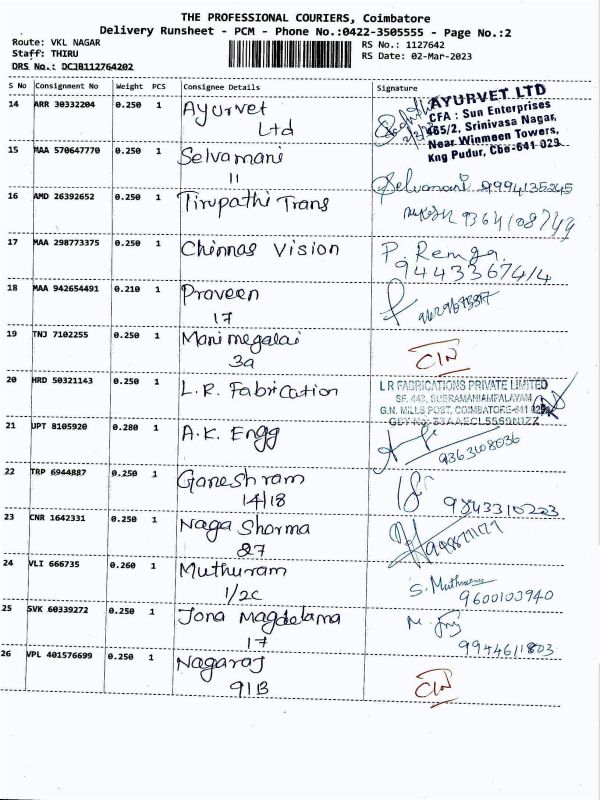 THE PROFESSIONAL COURIERS, Coimbatore
Delivery Runsheet - PCM - Phone No.:0422-3505555 - Page No.:2
Route: VKL NAGAR
Staff: THIRU
DRS No.: DCJB112764202
RS No.: 1127642
RS Date: 02-Mar-2023
S No Consignment No Weight PCS Consignee Details Signature
14 ARR 30332204 0.250 1 Ayurvet
Ltd
AYURVET LTD
CFA : Sun Enterprises
485/2, Srinivasa Nagar,
Near Winmeen Towers,
Kng Pudur, Cbe-641 029
15 MAA 570647770 0.250 1 Selvamani
11
Selvamani 9994135245
16 AMD 26392652 0.250 1 Tirupathi Trans
17 MAA 298773375 0.250 1 Chinnas Vision P. Remga
9443367414
18 MAA 942654491 0.210 1 Praveen
17
19 TNJ 7102255 0.250 1 Manimegalai
3a
CIN
20 HRD 50321143 0.250 1 L.R. Fabrication
L R FABRICATIONS PRIVATE LIMITED
SF. 443, SUBRAMANIAMPALAYAM
G.N. MILLS POST, COIMBATORE-641 029
21 UPT 8105920 0.280 1 A.K. Engg
9363108036
22 TRP 6944887 0.250 1 Ganeshram
14/18
9843310223
23 CNR 1642331 0.250 1 Naga Sharma
27
24 VLI 666735 0.260 1 Muthuram
1/2C
S. Muthu
9600103940
25 SVK 60339272 0.250 1 Jona Magdelama
17
9944611803
26 VPL 401576699 0.250 1 Nagaraj
91B
CIN